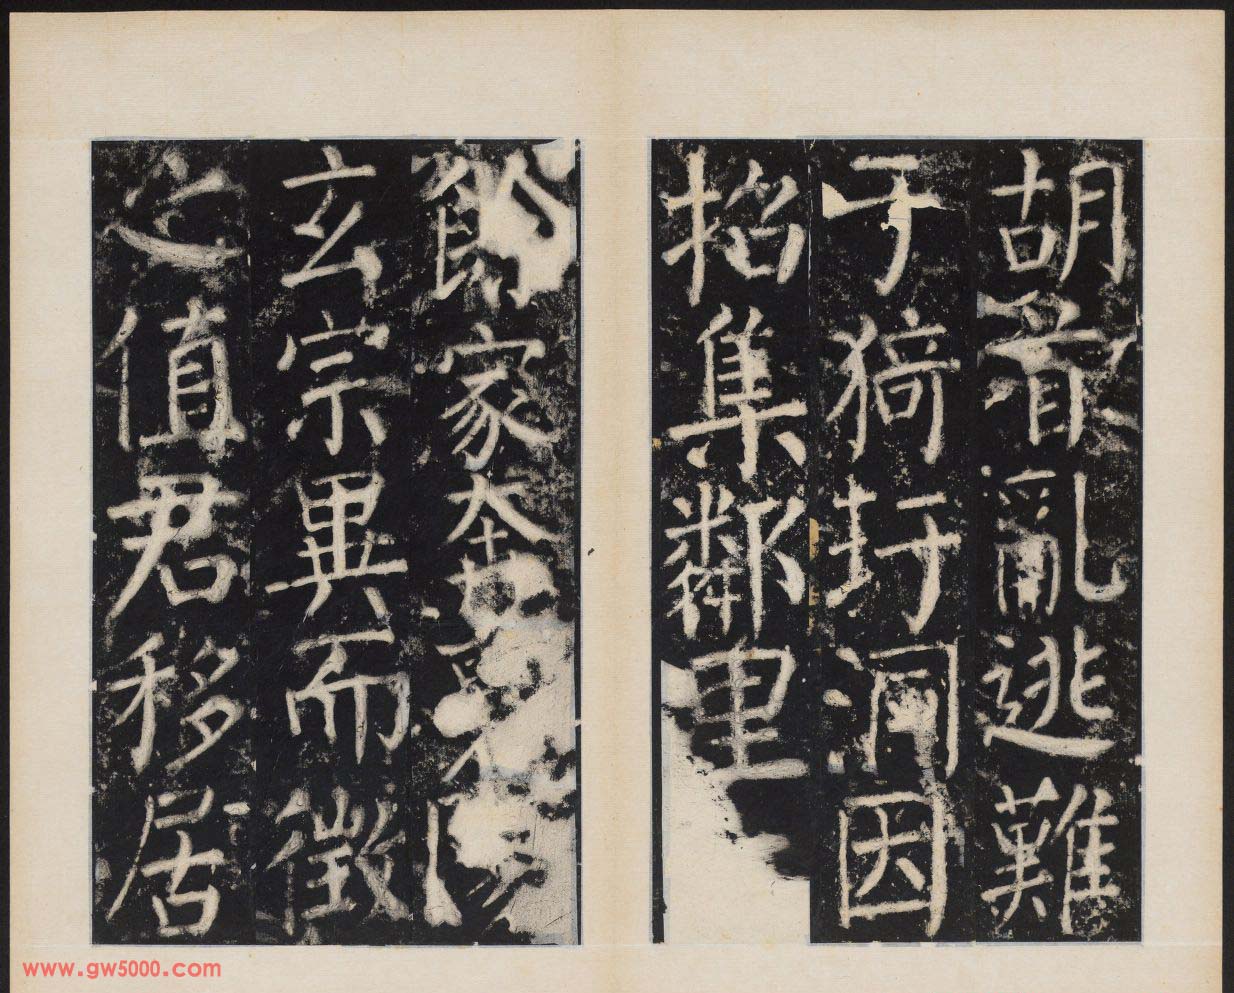 胡羯亂逃難
于猗玗洞因
招集鄰里
餘家奔
玄宗異而徵
之值君移居
www.gw5000.com